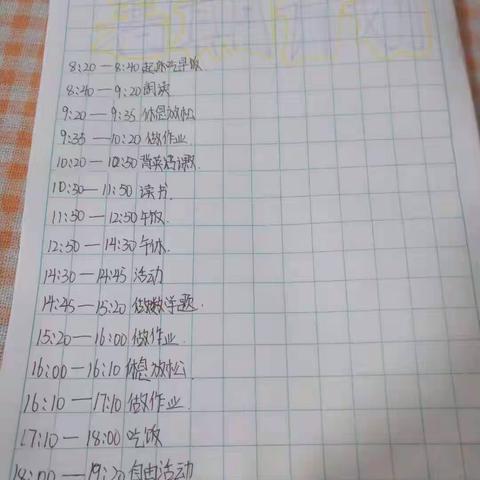 暑期计划
8:20—8:40起床吃早饭.
8:40—9:20阅读
9:20—9:35休息放松
9:35—10:20做作业.
10:20—10:50背英语课
10:50—11:50读书.
11:50—12:50午饭.
12:50—14:30午休.
14:30—14:45活动
14:45—15:20做数学题.
15:20—16:00做作业.
16:00—16:10休息放松.
16:10—17:10做作业.
17:10—18:00吃饭
18:00—19:20自由活动